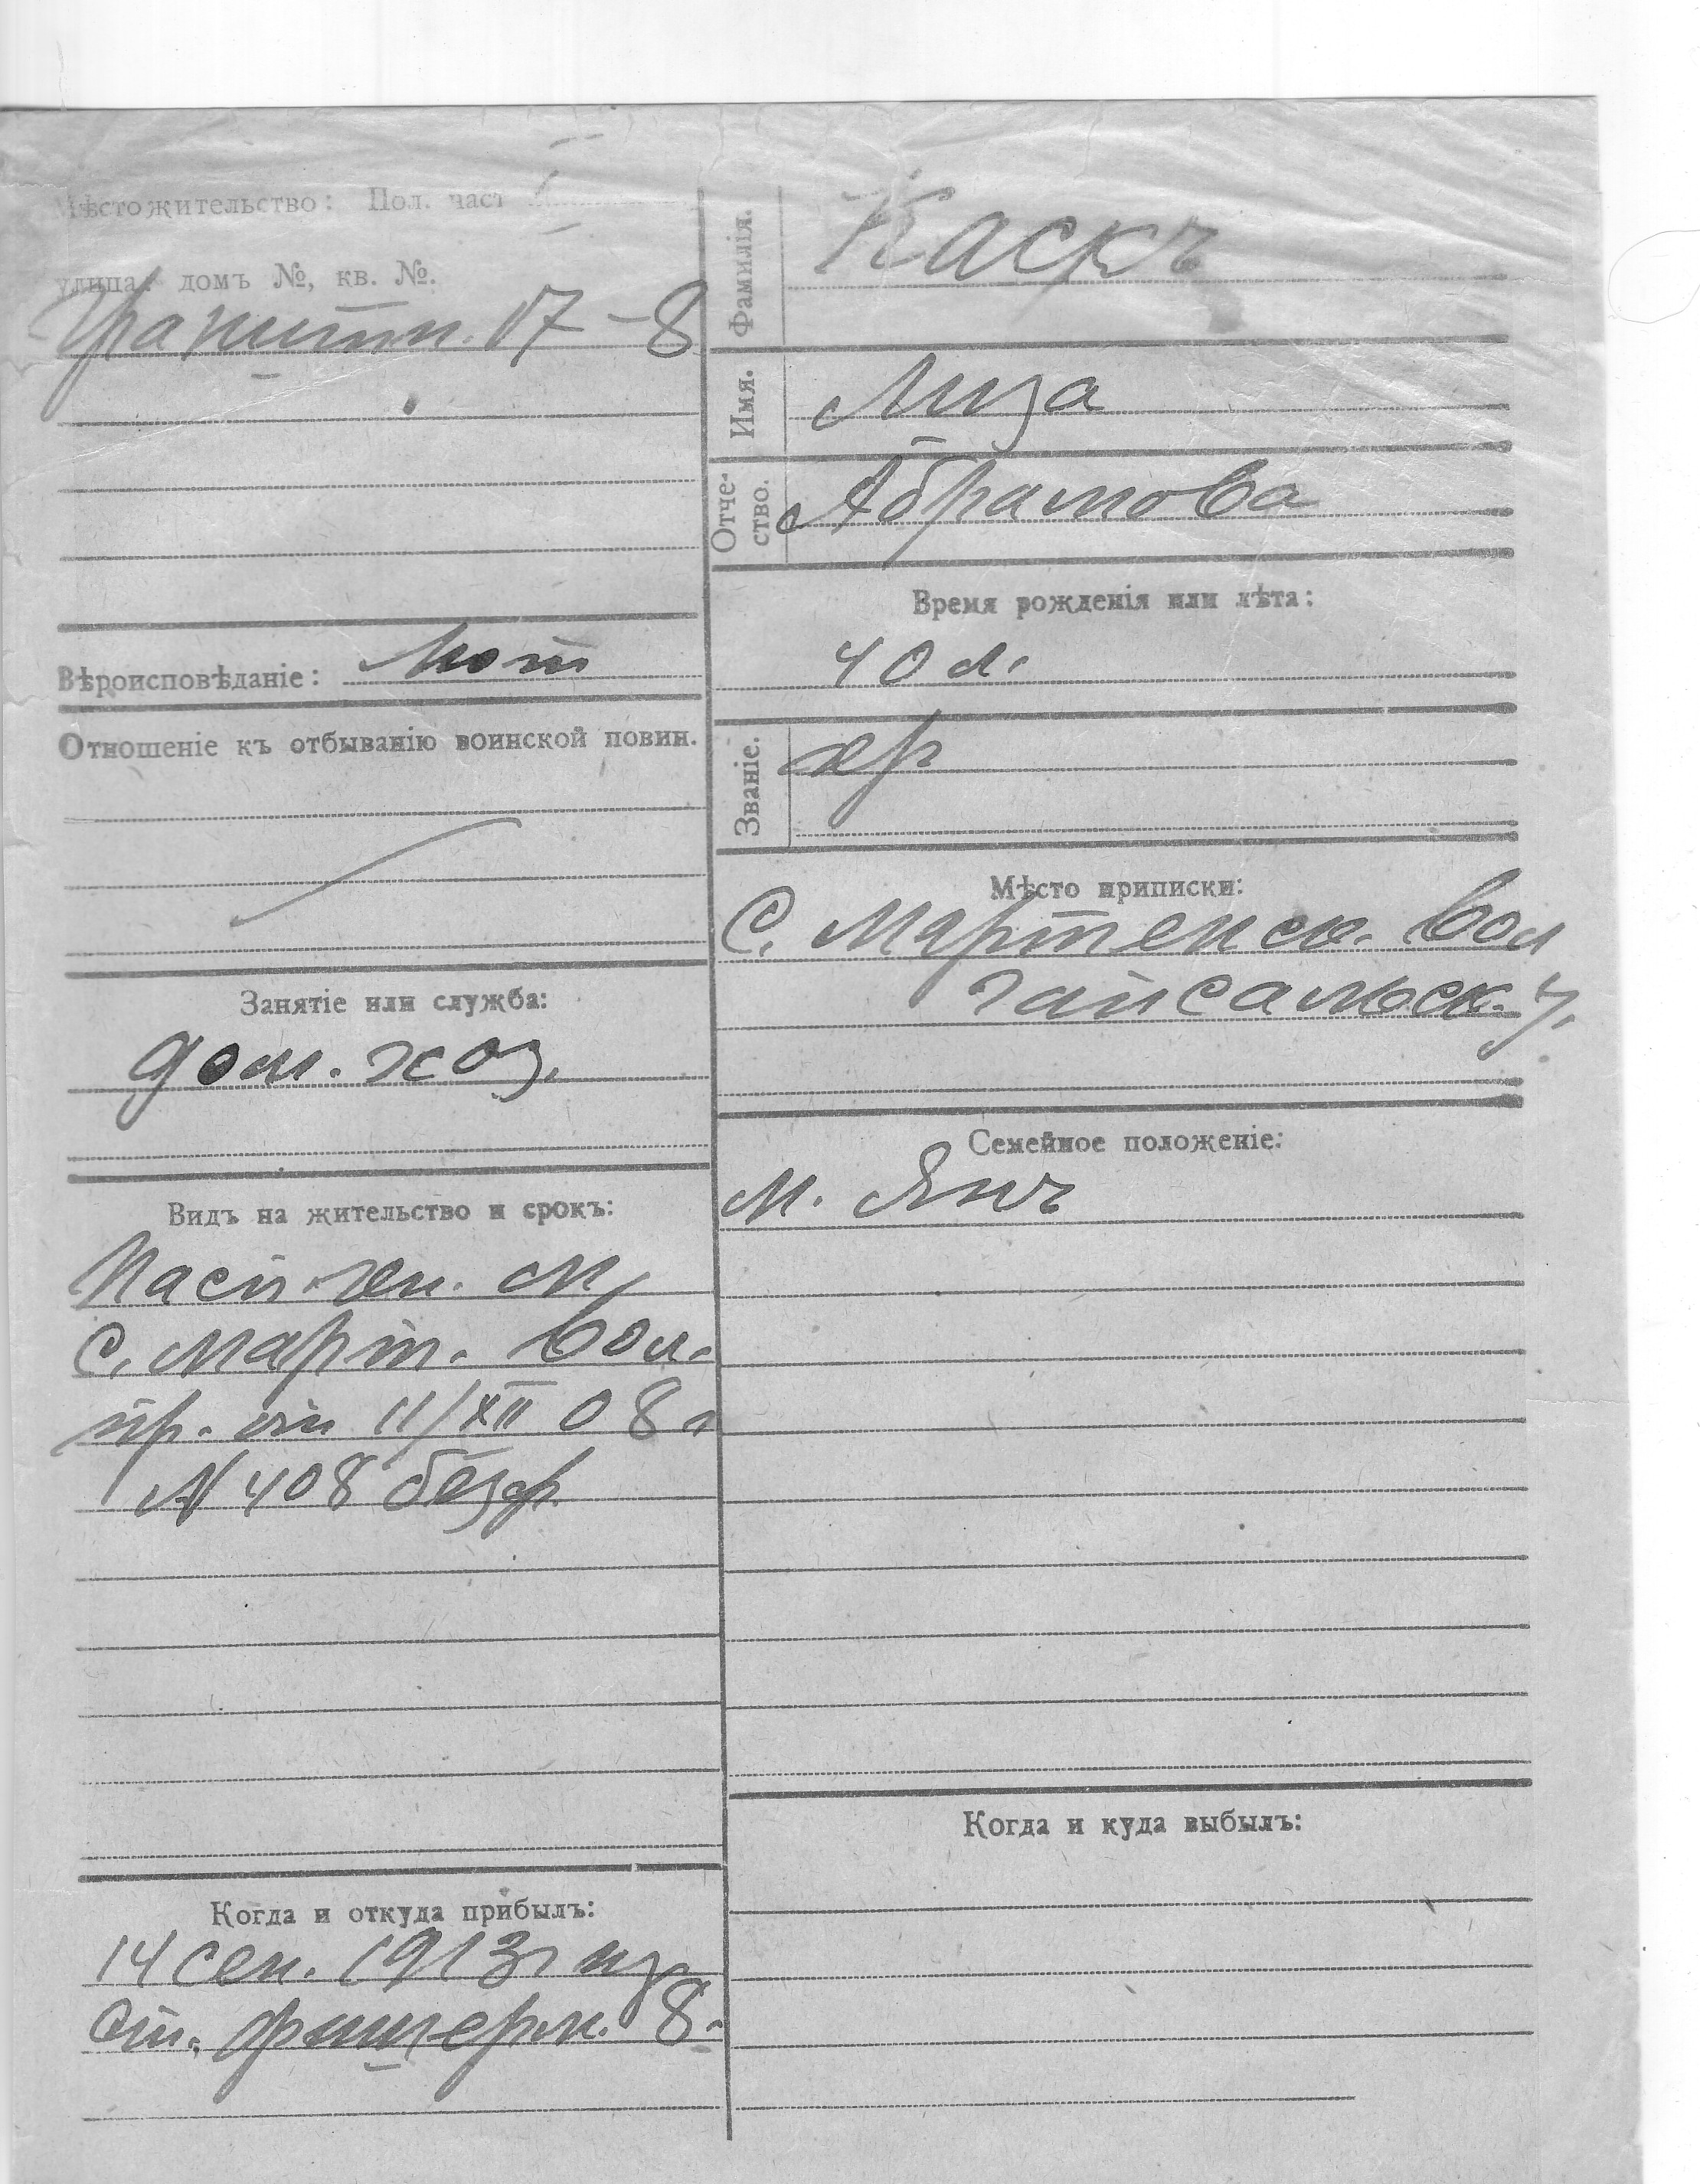 Мѣстожительство: Пол. част
улица: дом ъ №, кв. №.
Гранитн. 17 – 8
Вѣроисповѣданіе: Лют
Отношеніе къ отбыванію воинской повин.
Занятіе или служба:
дом. хоз.
Видъ на жительство и срокъ:
Пасп. ген. м
С. Март. вол.
пр. от 11/XII 08 г
N 408 безср.
Когда и откуда прибылъ:
14 сен. 1913 г из
Ст. Фишерм. 8.
Фамилія. Каскъ
Имя. Лиза
Отчество. Абрамова
Время рожденія или лѣта:
40 л.
Званіе. кр
Мѣсто приписки:
С. Мартенск. вол
Гапсальск. у.
Семейное положеніе:
м. Янъ
Когда и куда выбылъ: